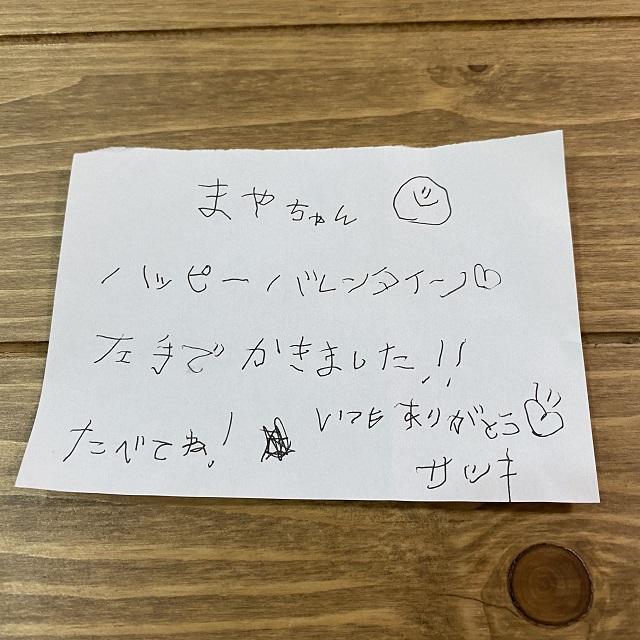 まやちゃん
ハッピーバレンタイン♡
左手でかきました!!
たべてね!
いつもありがとう♡
サツキ